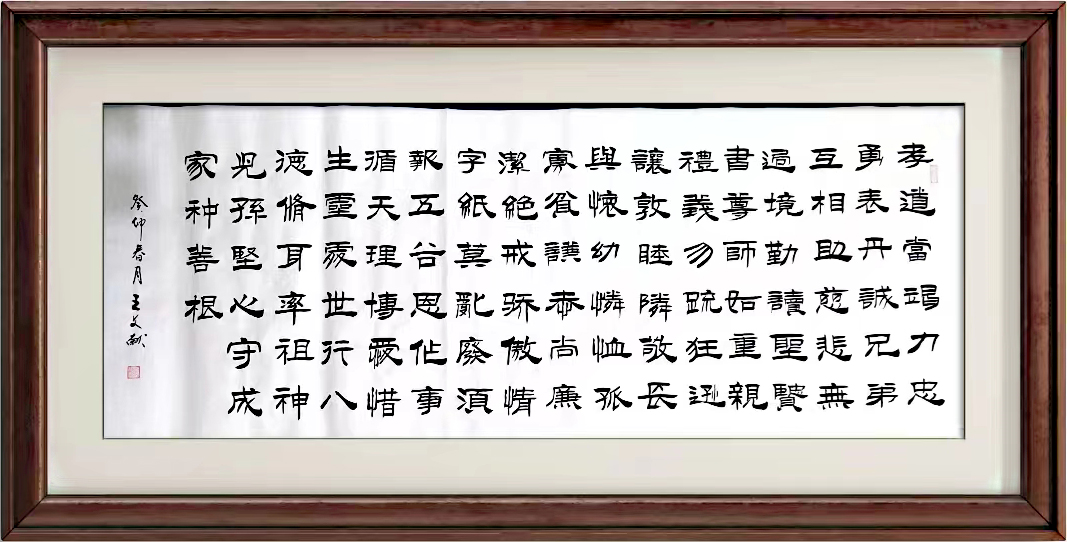 孝道當竭力忠
勇表丹誠兄弟
互相助慈悲無
過境勤讀聖賢
書尊師如重親
禮義勿疏狂遜
讓敦睦隣敬長
與懷幼憐恤孤
寡貧謙恭尚廉
潔絕戒驕傲情
字紙莫亂廢須
報五谷恩作事
循天理博愛惜
生靈處世行八
德脩身率祖神
兒孫堅心守成
家種善根
癸卯春月王文獻